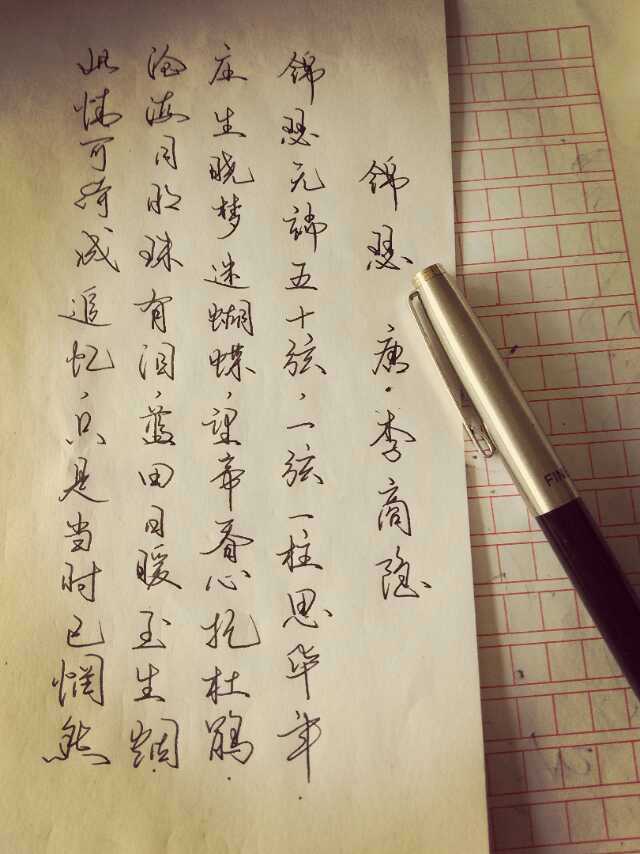 锦瑟 唐·李商隐
锦瑟无端五十弦，一弦一柱思华年.
庄生晓梦迷蝴蝶，望帝春心托杜鹃.
沧海月明珠有泪，蓝田日暖玉生烟.
此情可待成追忆，只是当时已惘然
FIN